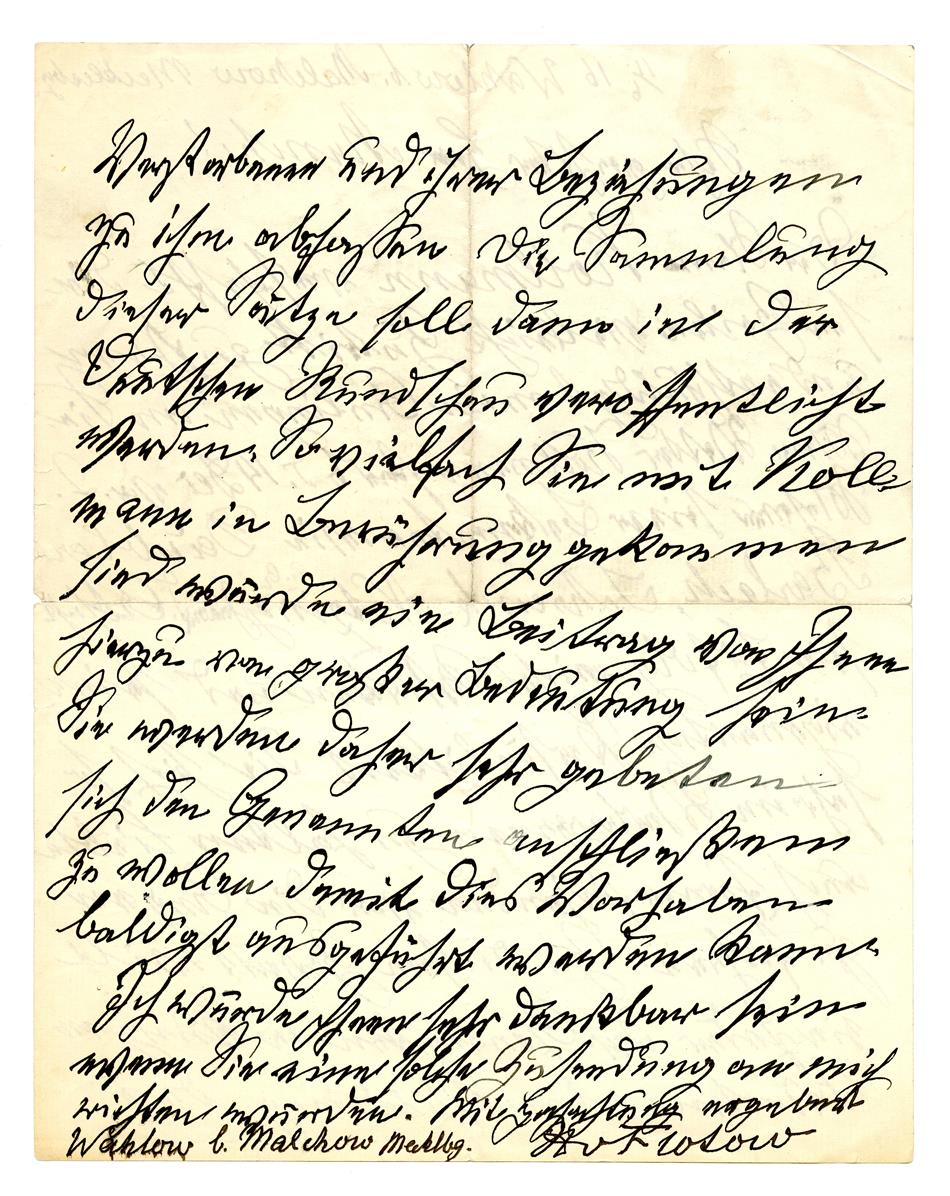 Verstorbenen und ihrer Beziehungen
zu ihm abfassen Die Sammlung
dieser Sätze soll dann in der
Deutschen Rundschau veröffentlicht
werden. So vielfach Sie mit Koll-
mann in Berührung gekommen
sind würde ein Beitrag von Ihnen
hierzu von großer Bedeutung sein.
Sie werden daher sehr gebeten
sich den Genannten anschließen
zu wollen damit dies Vorhaben
baldigst ausgeführt werden kann.
Ich würde Ihnen sehr dankbar sein
wenn Sie eine solche Zusendung an mich
richten würden. Mit Hochachtung ergebenst
Wahlow b. Malchow Meklbg. Flotow